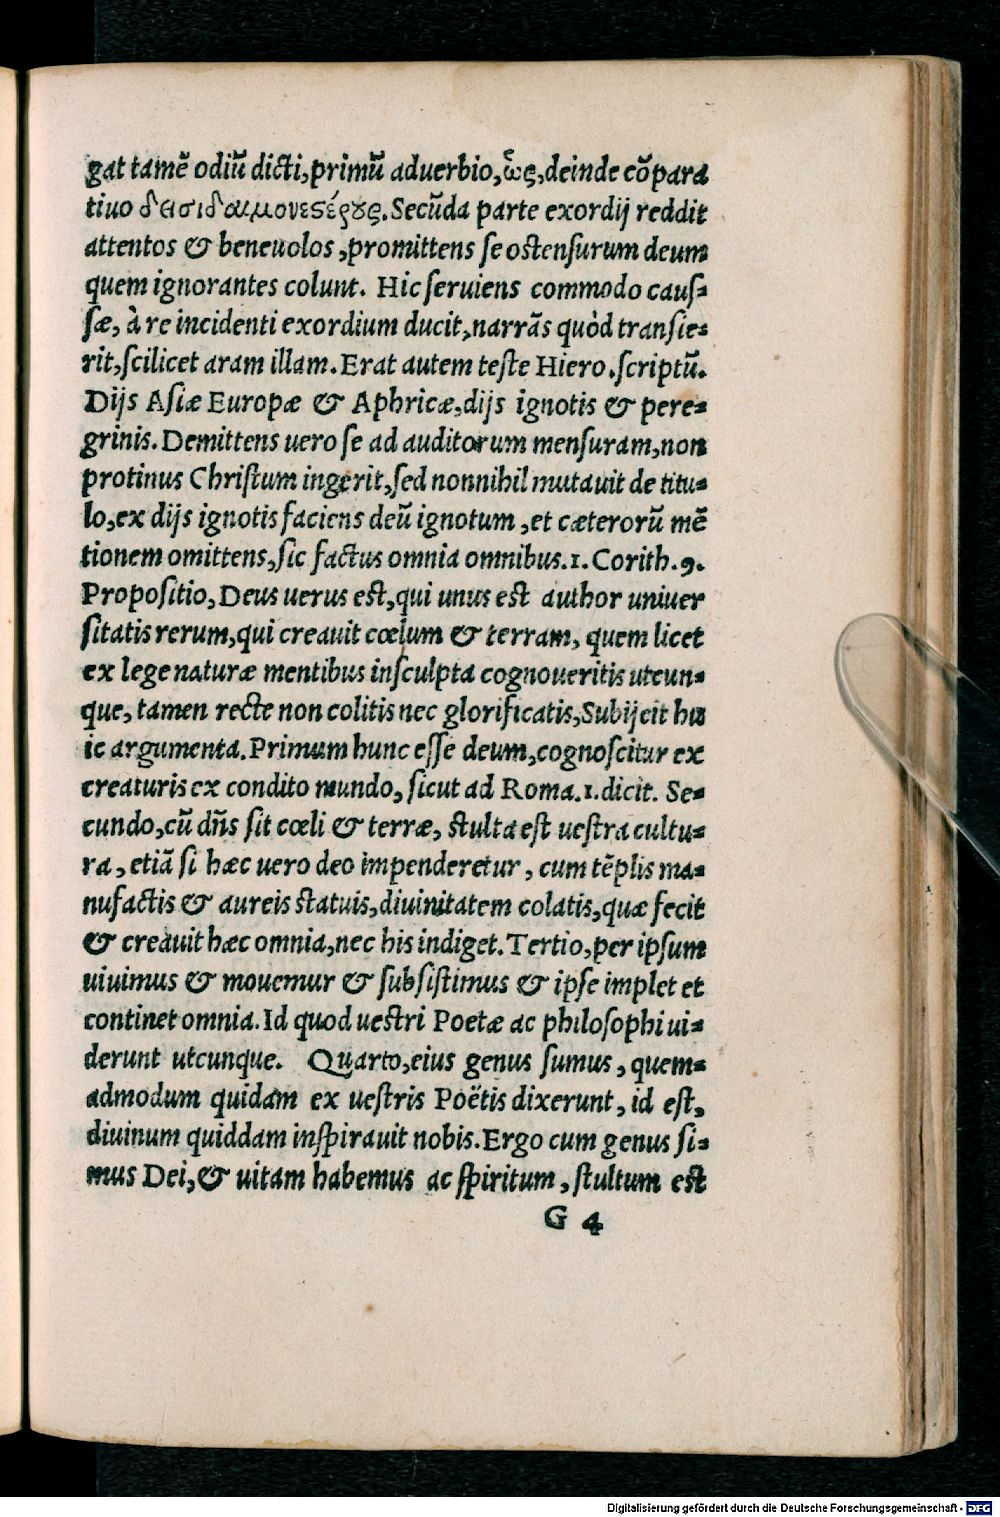 gat tamē odiū dicti, primū aduerbio, ὧς, deinde cōpara
tiuo δεισιδαιμονεϛέρȣς. Secūda parte exordij reddit
attentos & beneuolos, promittens se ostensurum deum
quem ignorantes colunt. Hic seruiens commodo caus-
sæ, à re incidenti exordium ducit, narrãs quòd transie-
rit, scilicet aram illam. Erat autem teste Hiero. scriptū.
Dijs Asiæ Europæ & Aphricæ, dijs ignotis & pere-
grinis. Demittens uero se ad auditorum mensuram, non
protinus Christum ingerit, sed nonnihil mutauit de titu-
lo, ex dijs ignotis faciens deū ignotum, et cæterorū mē
tionem omittens, sic factus omnia omnibus. 1. Corith. 9.
Propositio, Deus uerus est, qui unus est author uniuer
sitatis rerum, qui creauit cœlum & terram, quem licet
ex lege naturæ mentibus insculpta cognoueritis utcun-
que, tamen recte non colitis nec glorificatis, Subijcit hu
ic argumenta. Primum hunc esse deum, cognoscitur ex
creaturis ex condito mundo, sicut ad Roma. 1. dicit. Se-
cundo, cū dñs sit cœli & terræ, stulta est uestra cultu-
ra, etiã si hæc uero deo impenderetur, cum tēplis ma-
nufactis & aureis statuis, diuinitatem colatis, quæ fecit
& creauit hæc omnia, nec his indiget. Tertio, per ipsum
uiuimus & mouemur & subsistimus & ipse implet et
continet omnia. Id quod uestri Poetæ ac philosophi ui-
derunt utcunque. Quarto, eius genus sumus, quem-
admodum quidam ex uestris Poëtis dixerunt, id est,
diuinum quiddam inspirauit nobis. Ergo cum genus si-
mus Dei, & uitam habemus ac spiritum, stultum est
G 4
Digitalisierung gefördert durch die Deutsche Forschungsgemeinschaft - DFG